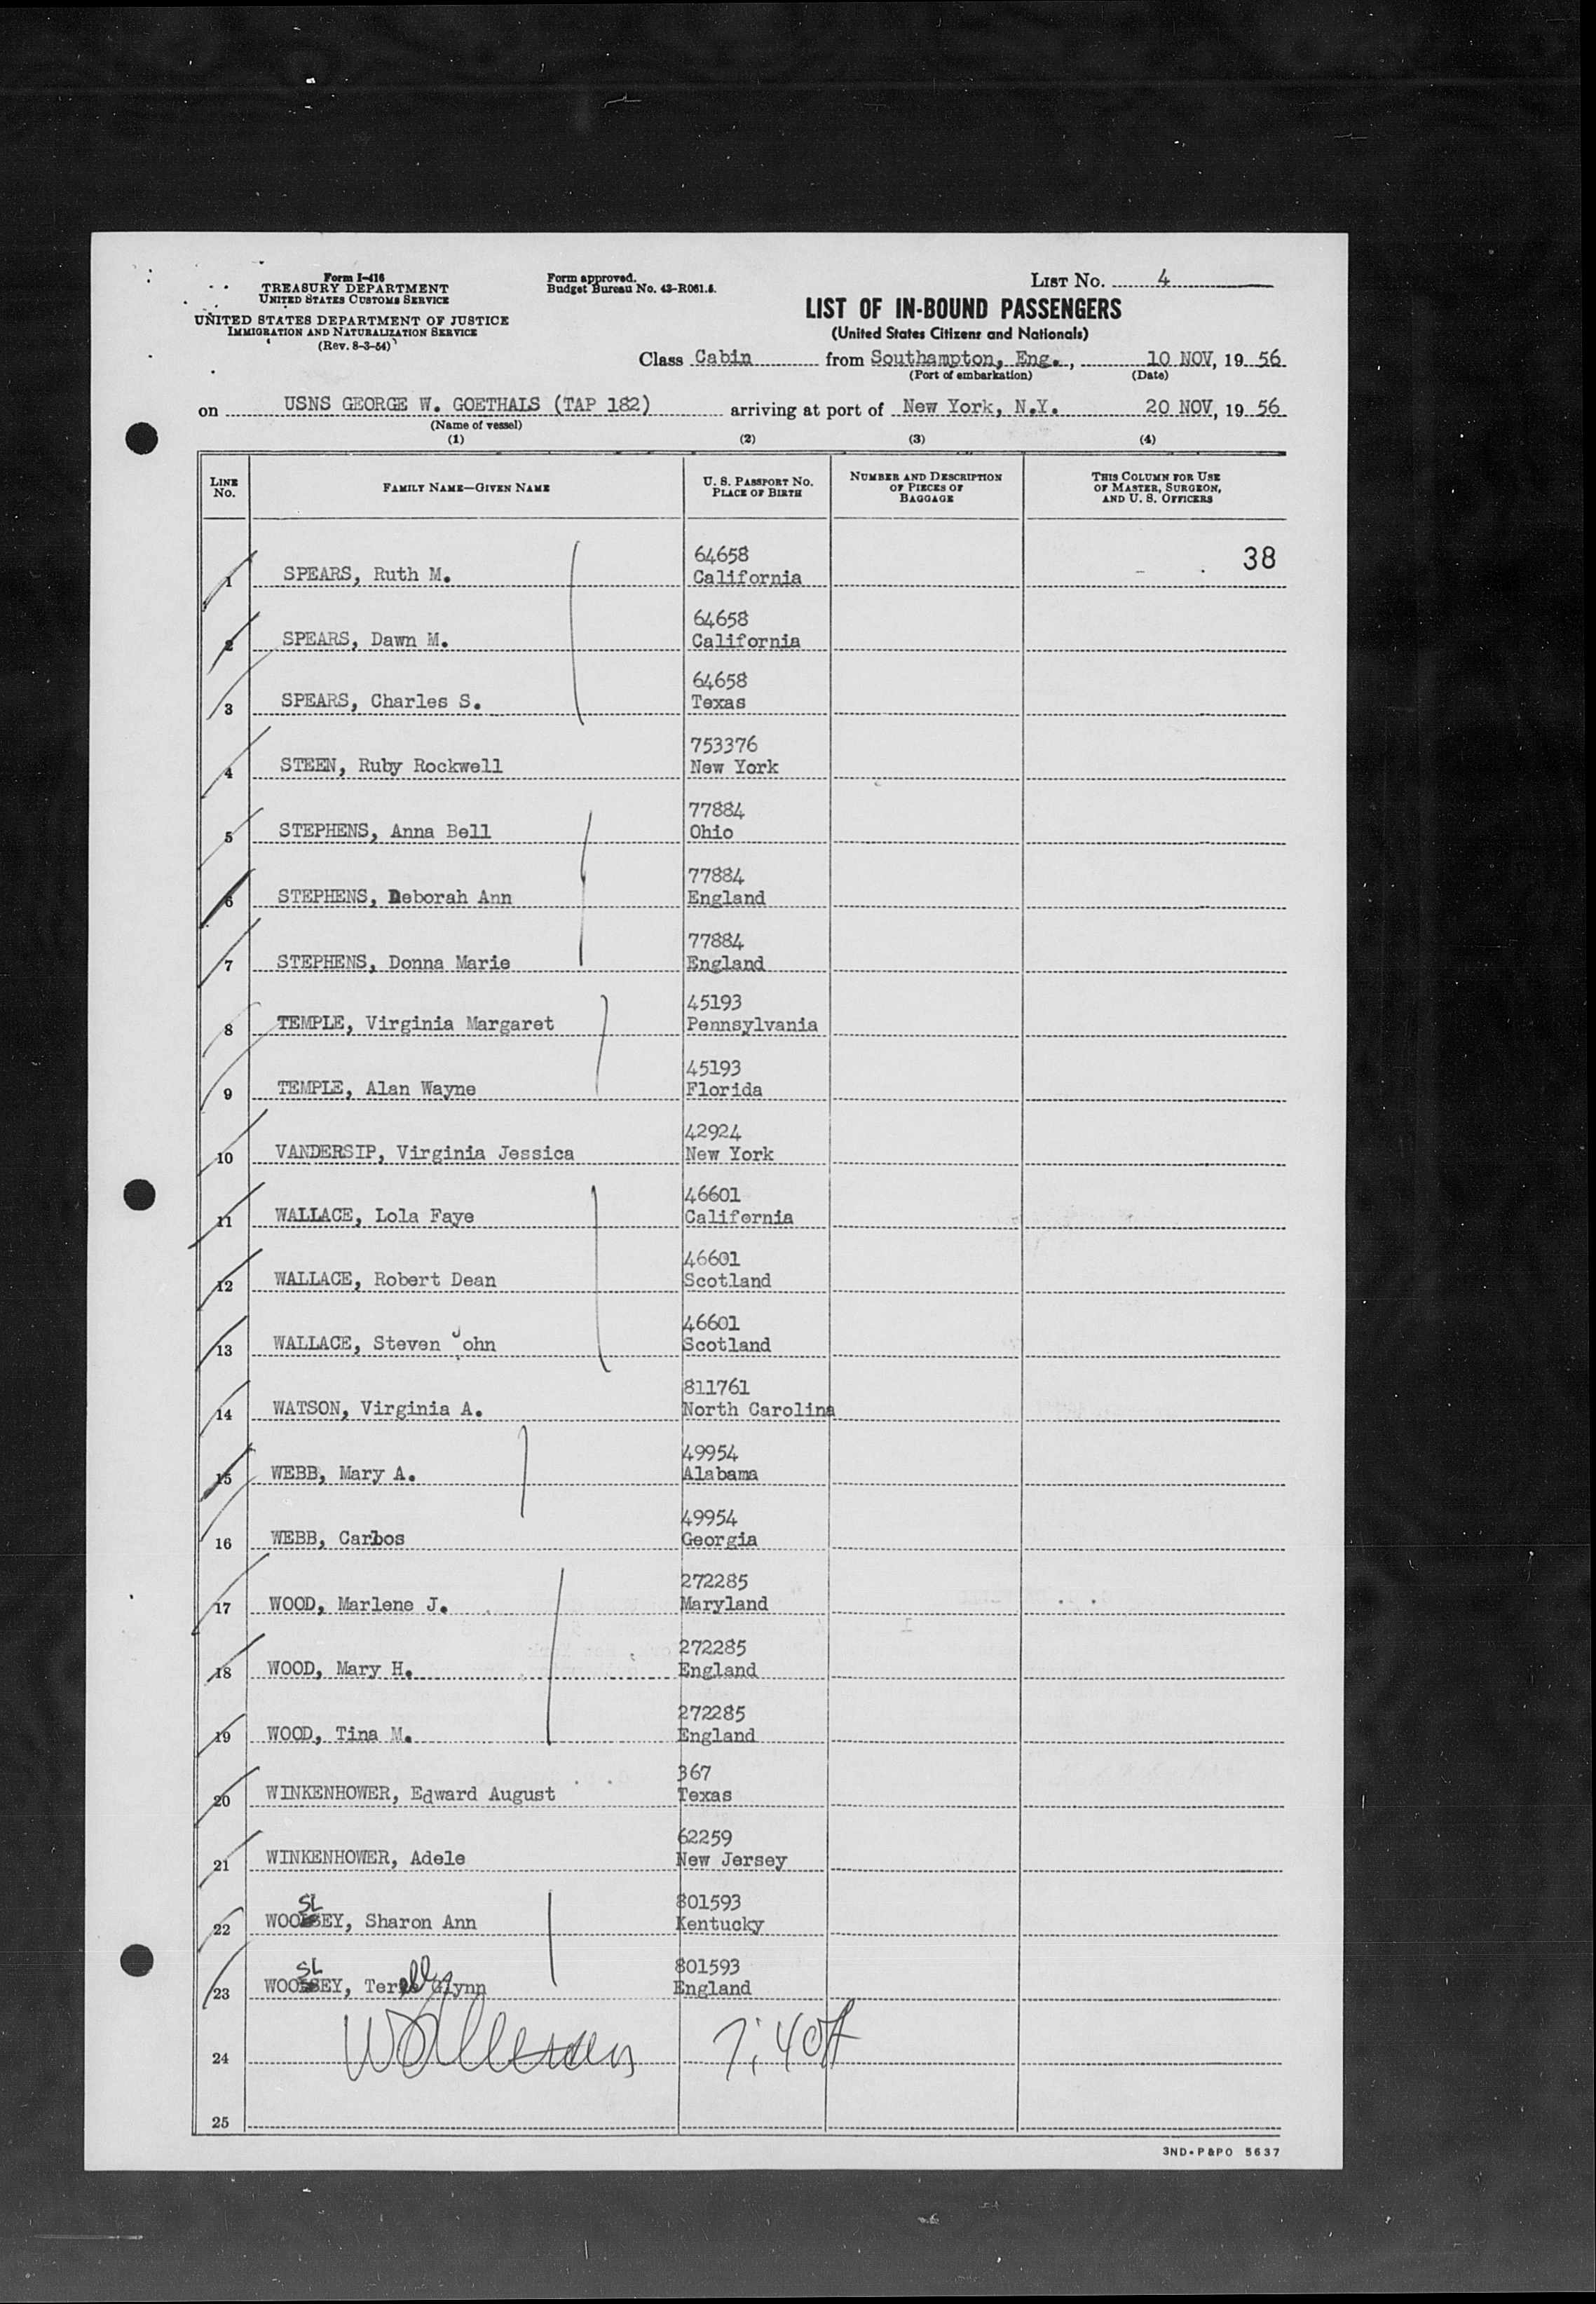 Form I-416
TREASURY DEPARTMENT
UNITED STATES CUSTOMS SERVICE
UNITED STATES DEPARTMENT OF JUSTICE
IMMIGRATION AND NATURALIZATION SERVICE
(Rev. 8-3-54)
Form approved.
Budget Bureau No. 43-R061.5.
LIST NO. 4
LIST OF IN-BOUND PASSENGERS
(United States Citizens and Nationals)
Class Cabin from Southampton, Eng., 10 NOV, 19 56
(Port of embarkation) (Date)
on USNS GEORGE W. GOETHALS (TAP 182) arriving at port of New York, N.Y. 20 NOV, 19 56
(Name of vessel)
(1) (2) (3) (4)
LINE NO. FAMILY NAME—GIVEN NAME U. S. PASSPORT NO. PLACE OF BIRTH NUMBER AND DESCRIPTION OF PIECES OF BAGGAGE THIS COLUMN FOR USE OF MASTER, SURGEON, AND U. S. OFFICERS
38
64658
1 SPEARS, Ruth M. California
64658
2 SPEARS, Dawn M. California
64658
3 SPEARS, Charles S. Texas
753376
4 STEEN, Ruby Rockwell New York
77884
5 STEPHENS, Anna Bell Ohio
77884
6 STEPHENS, Deborah Ann England
77884
7 STEPHENS, Donna Marie England
45193
8 TEMPLE, Virginia Margaret Pennsylvania
45193
9 TEMPLE, Alan Wayne Florida
42924
10 VANDERSIP, Virginia Jessica New York
46601
11 WALLACE, Lola Faye California
46601
12 WALLACE, Robert Dean Scotland
46601
13 WALLACE, Steven John Scotland
811761
14 WATSON, Virginia A. North Carolina
49954
15 WEBB, Mary A. Alabama
49954
16 WEBB, Carbos Georgia
272285
17 WOOD, Marlene J. Maryland
272285
18 WOOD, Mary H. England
272285
19 WOOD, Tina M. England
367
20 WINKENHOWER, Edward August Texas
62259
21 WINKENHOWER, Adele New Jersey
801593
22 WOOSLEY, Sharon Ann Kentucky
801593
23 WOOSLEY, Glynn England
24 7:40
25
3ND-P&PO 5637